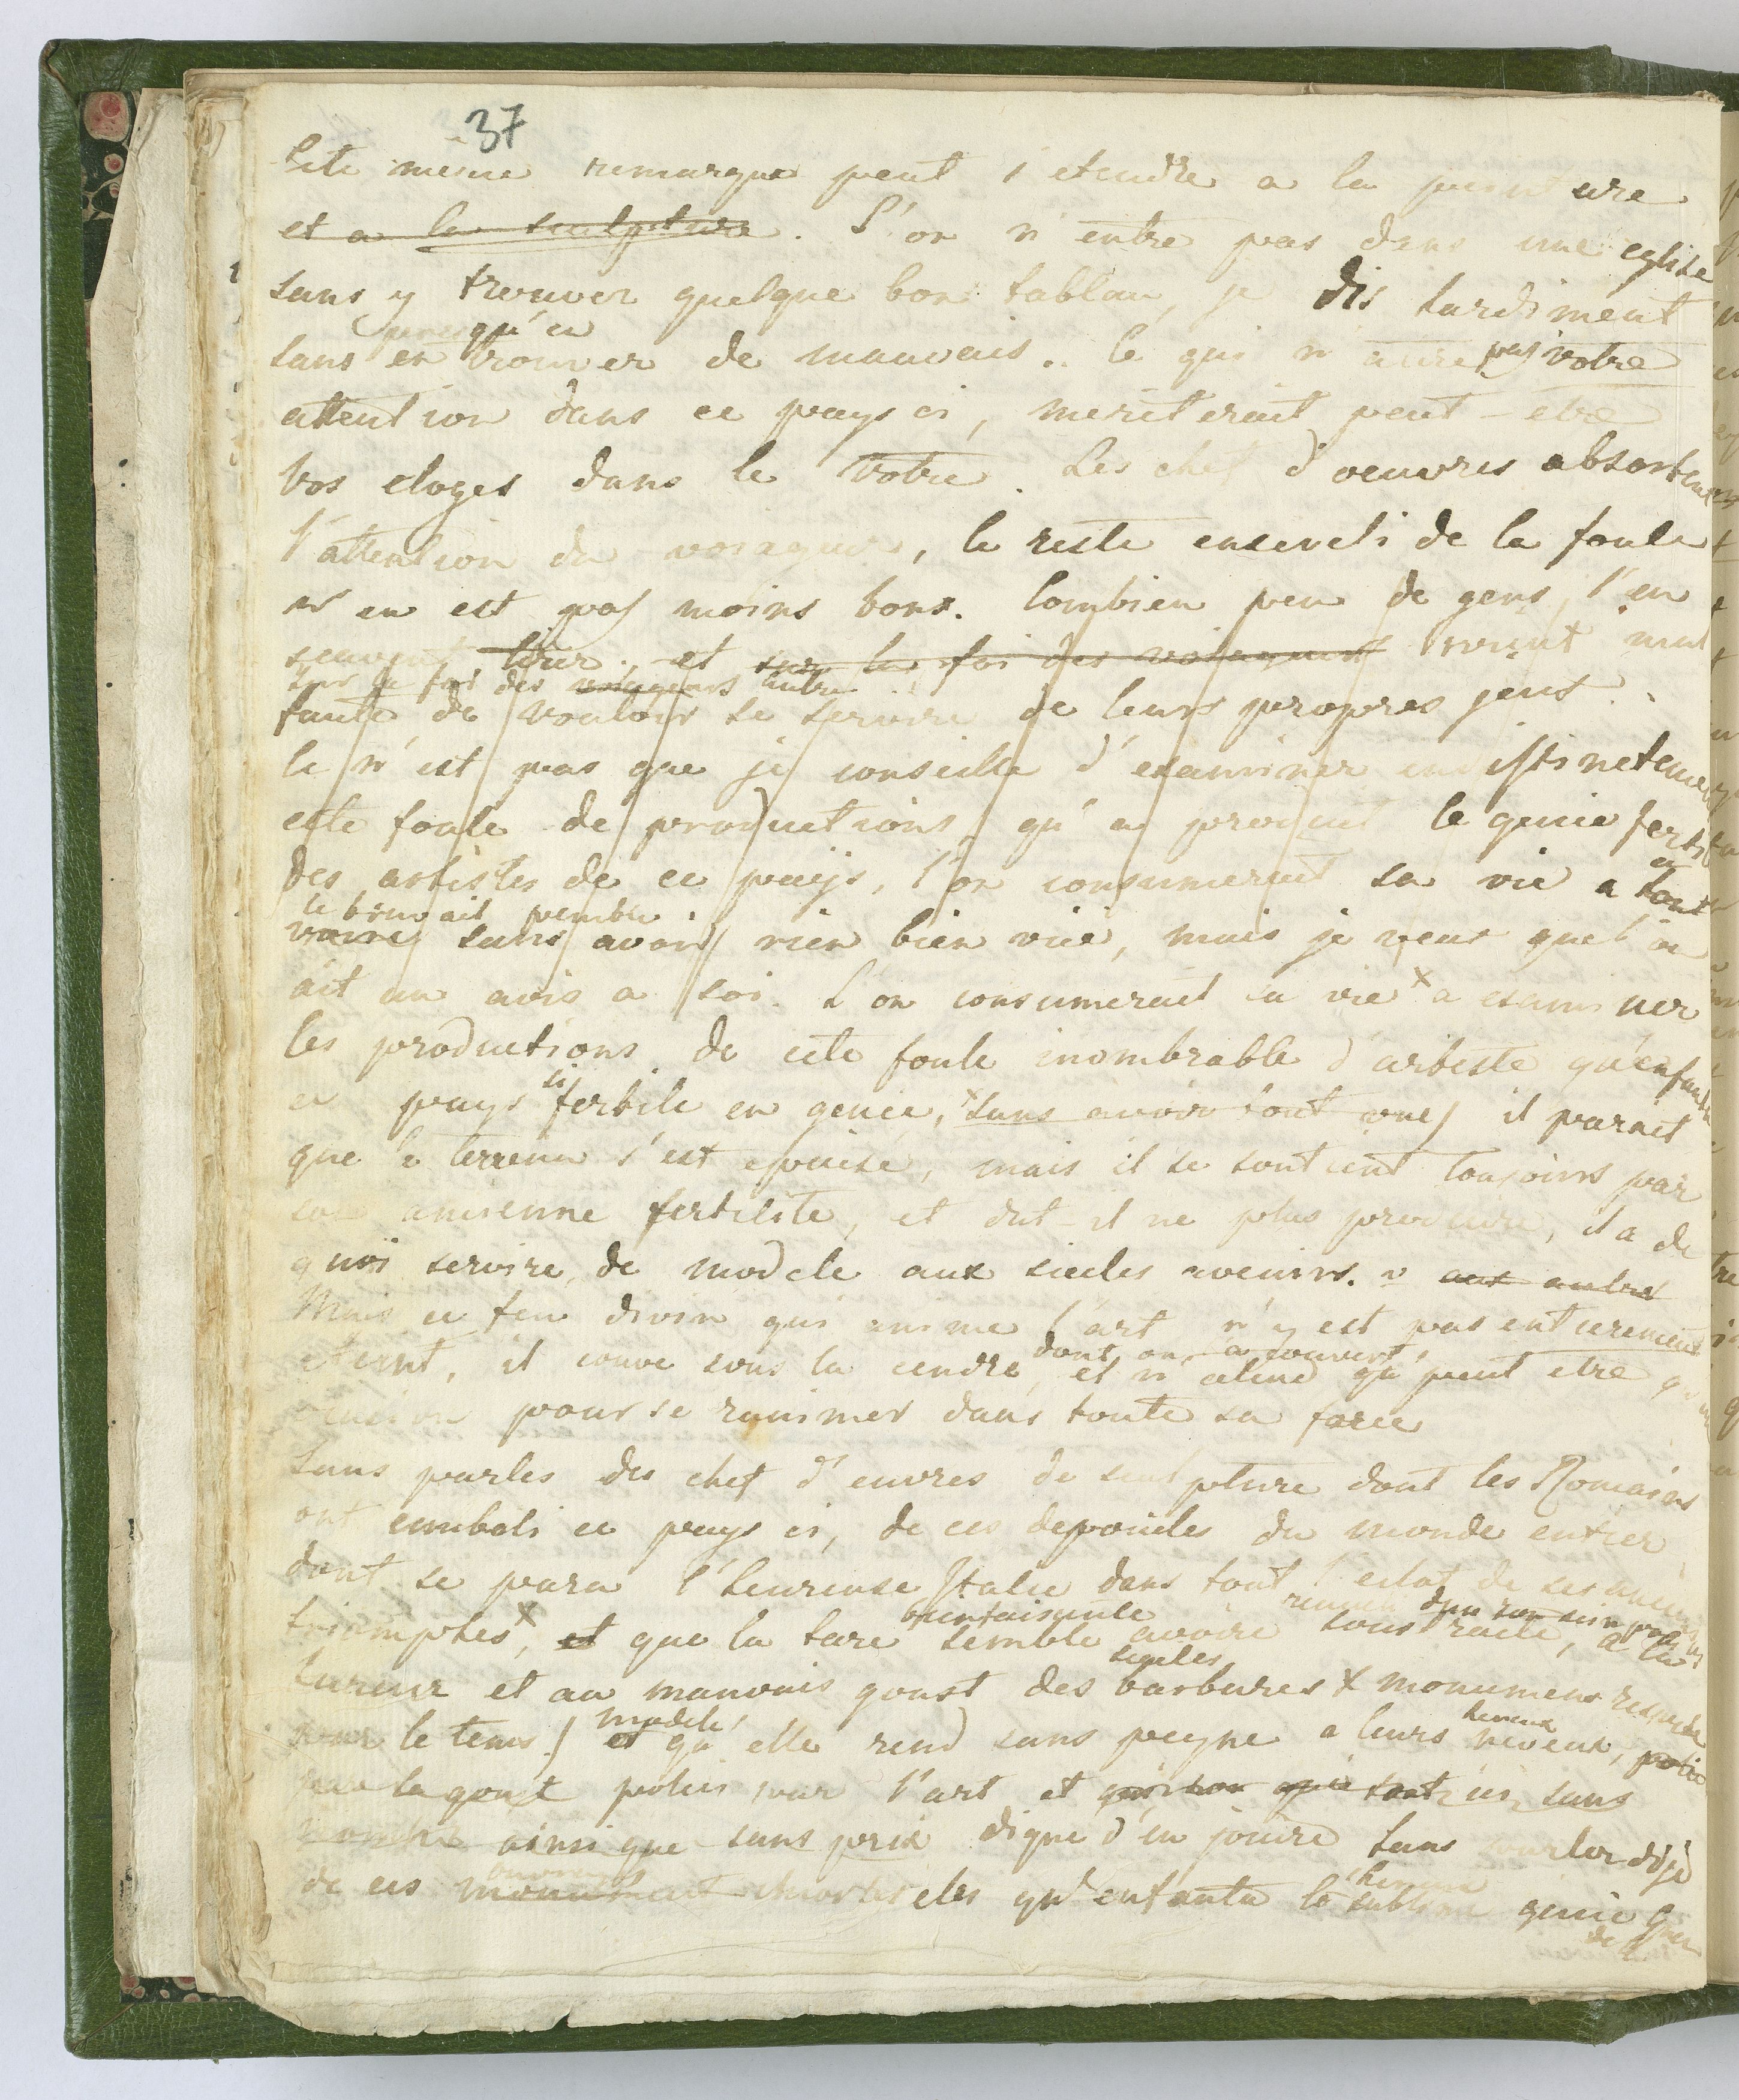 37
Cete même remarque peut s'etendre a la peinture
et a la sculpture. L'on n'entre pas dans une eglise
sans y trouver quelque bon tablau, je dis hardiment
presqu'en
sans en trouver de mauvais.. Ce qui n'atire pas votre
attention dans ce pays ci, meriterait peut-etre
vos eloges dans le votre. Les chef d'oeuvres absorbent
l'attention du voiageur, le reste enseveli de la foule
n'en est pas moins bons. Combien peu de gens s'en
scavent tirer, et sur la foi des voiageurs voient mal
sur la foi des voiageurs autre
faute de vouloir se servire de leurs propres jeux.
Ce n'est pas que je conseille d'examiner indistinctement
cete foule de productions qu'a produit le genie fertile
des artistes de ce païjs, l'on consumerait sa vie a tout
le travail penible
voire sans avoir rien bien vüe, mais je veux que l'on
ait un avis a soi. L'on consumerait sa vie x a examiner
les productions de cete foule inombrable d'artiste qu'enfanta
si
ce pays fertile en genie, x sans avoir tout vue il parait
que le terrein s'est epuisé, mais il se soutient toujours par
son ancienne fertilité, et dut-il ne plus produire, il a de
quoi servire de modele aux siecles avenirs. aux autres
Mais ce feu divin qui anime l'art n'y est pas entierement
dont on a couvert
eteint, il couve sous la cendre, et n'atend qu peut etre
pour se ranimer dans toute sa force
Sans parler des chef d'euvres de sculpture dont les Romains
ont embeli ce pays ci, de ces depouiles du monde entier
dont se para l'heureuse Italie dans tout l'eclat de ses anciens
bienfaisante
triomphes x, et que la tere semble avoire soustraite, a la
siecles
fureur et au mauvais goust des barbares x monumens respecté
modele
par le tems / et qu'elle rend sans peyne a leurs neveux, polic
par la goust polis par l'art et sont ici sans
nombre ainsi que sans prix digne d'en jouire sans parler dije
ouvrages
de ces monument immorteles qu'enfanta le sublime genie
de